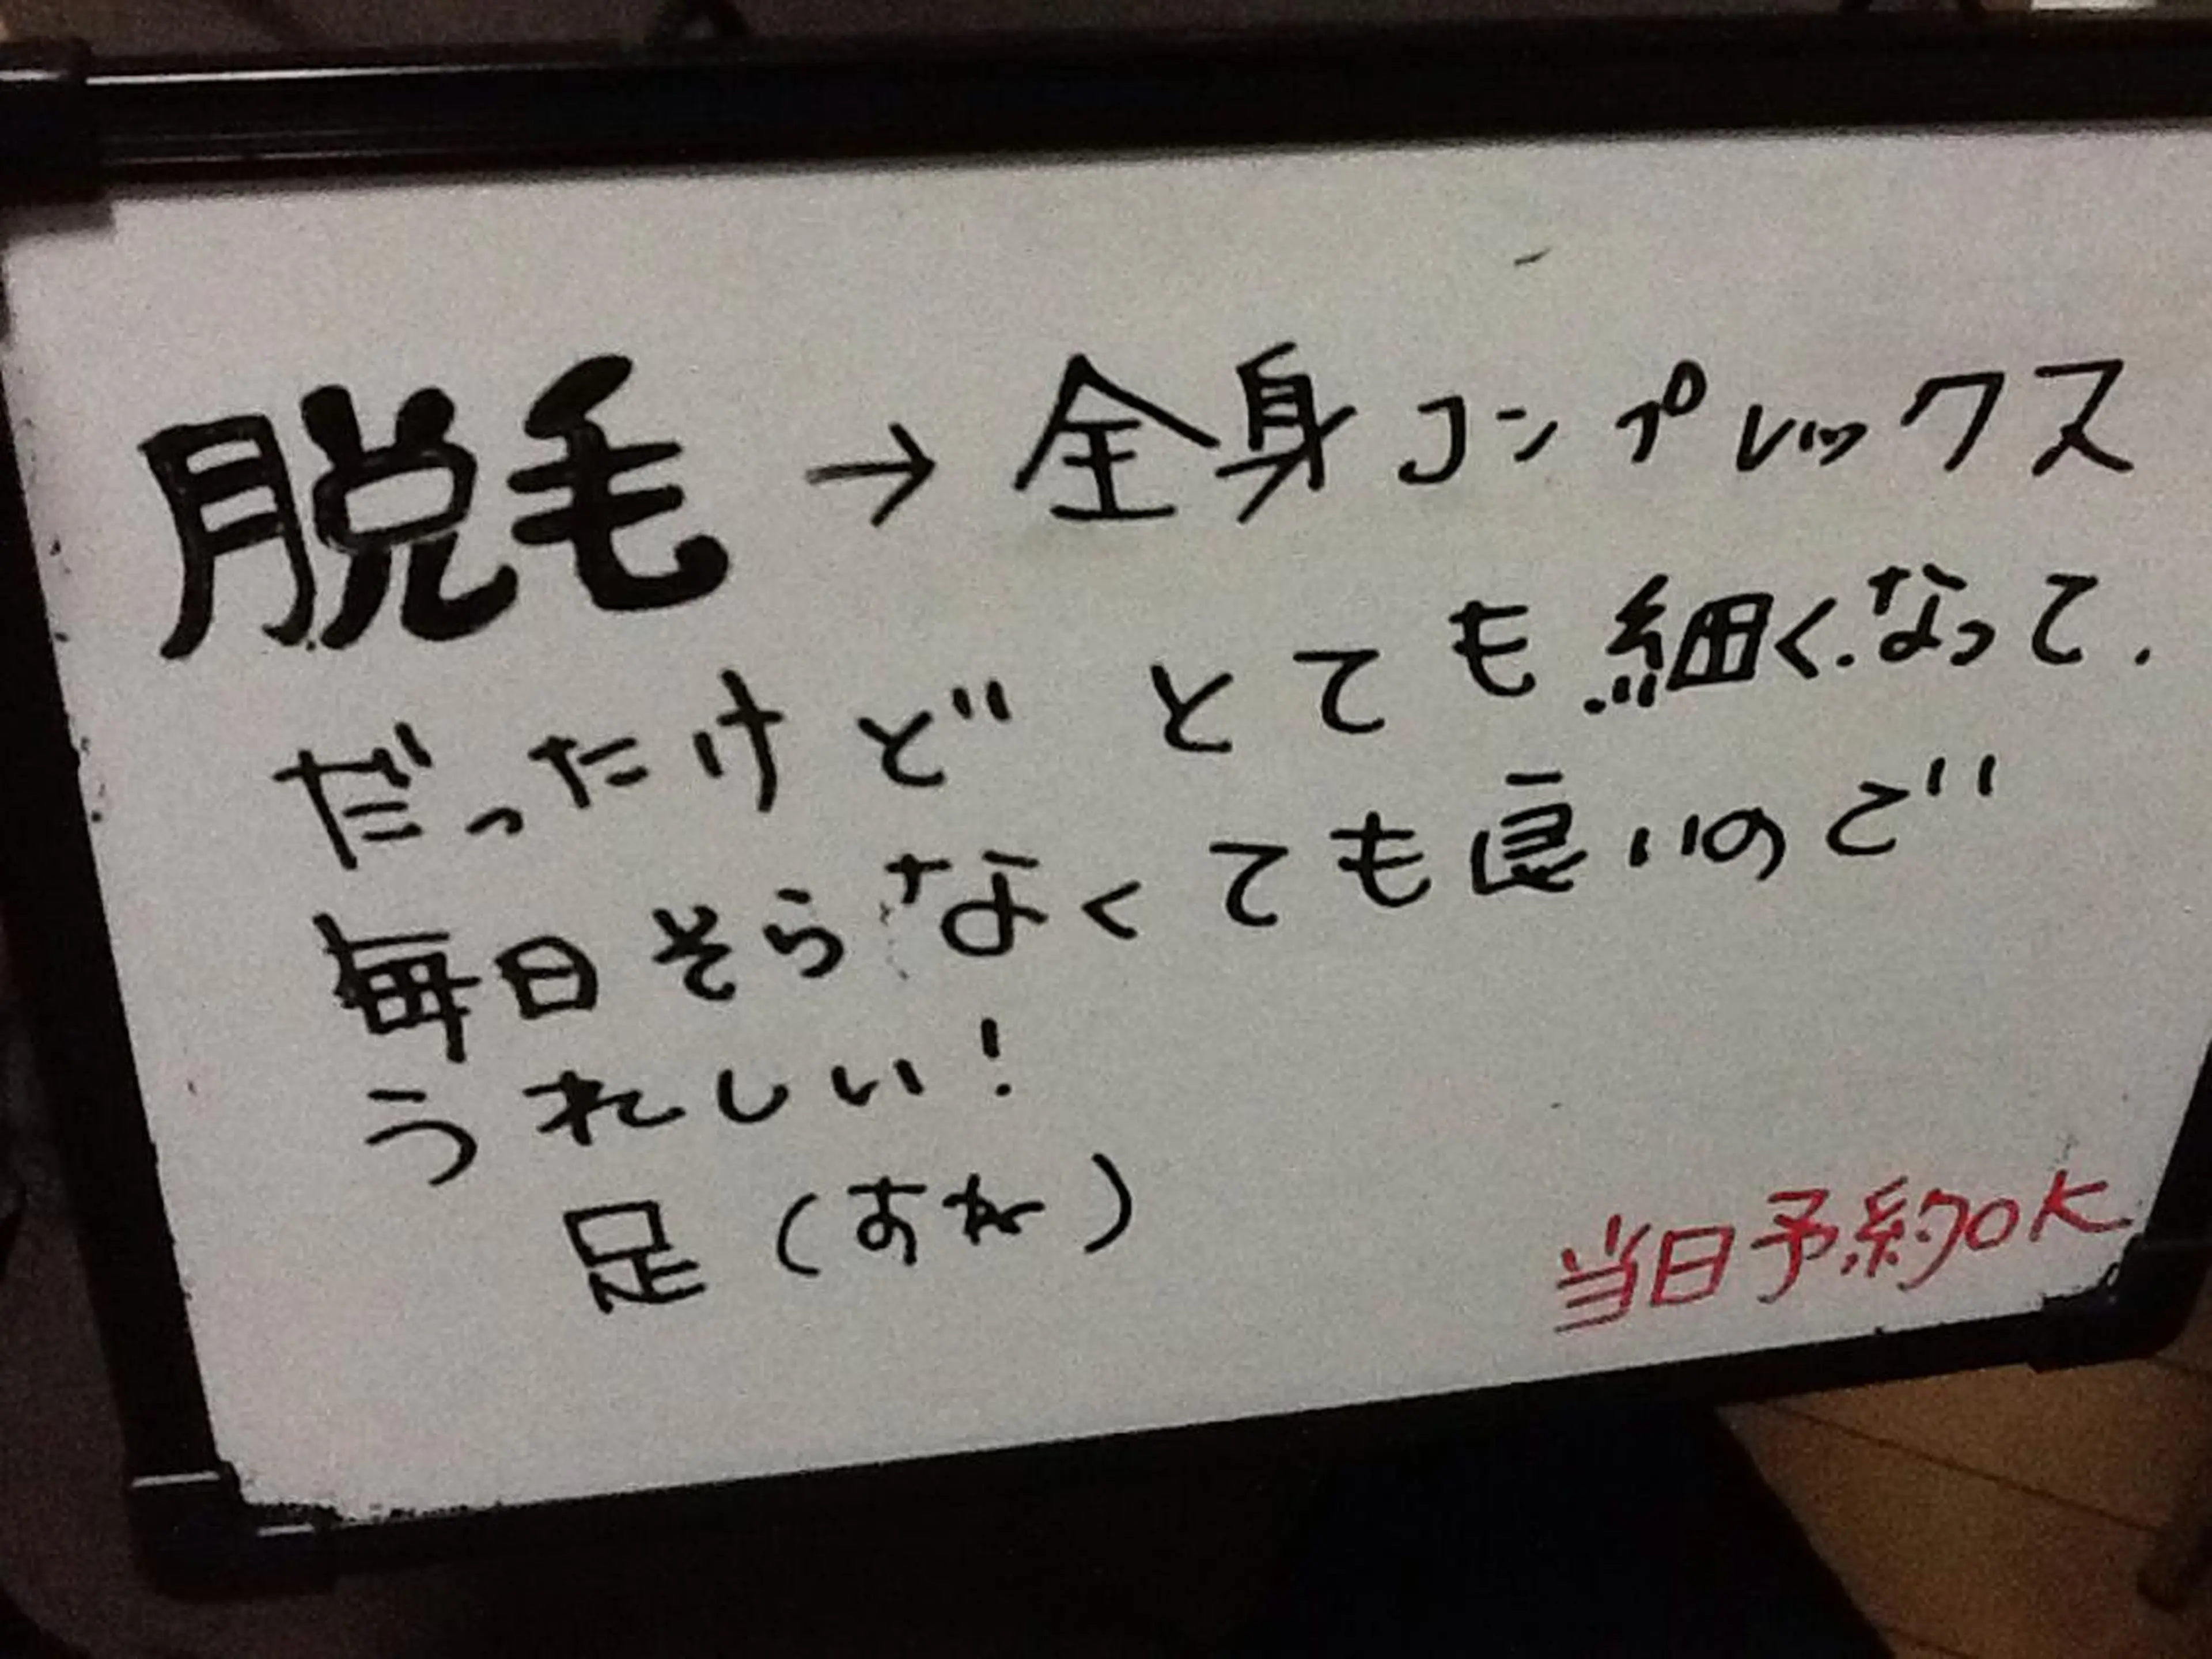 脱毛→全身コンプレックス
だったけど とても細くなって.
毎日そらなくても良いので
うれしい!
足(すね)
当日予約OK